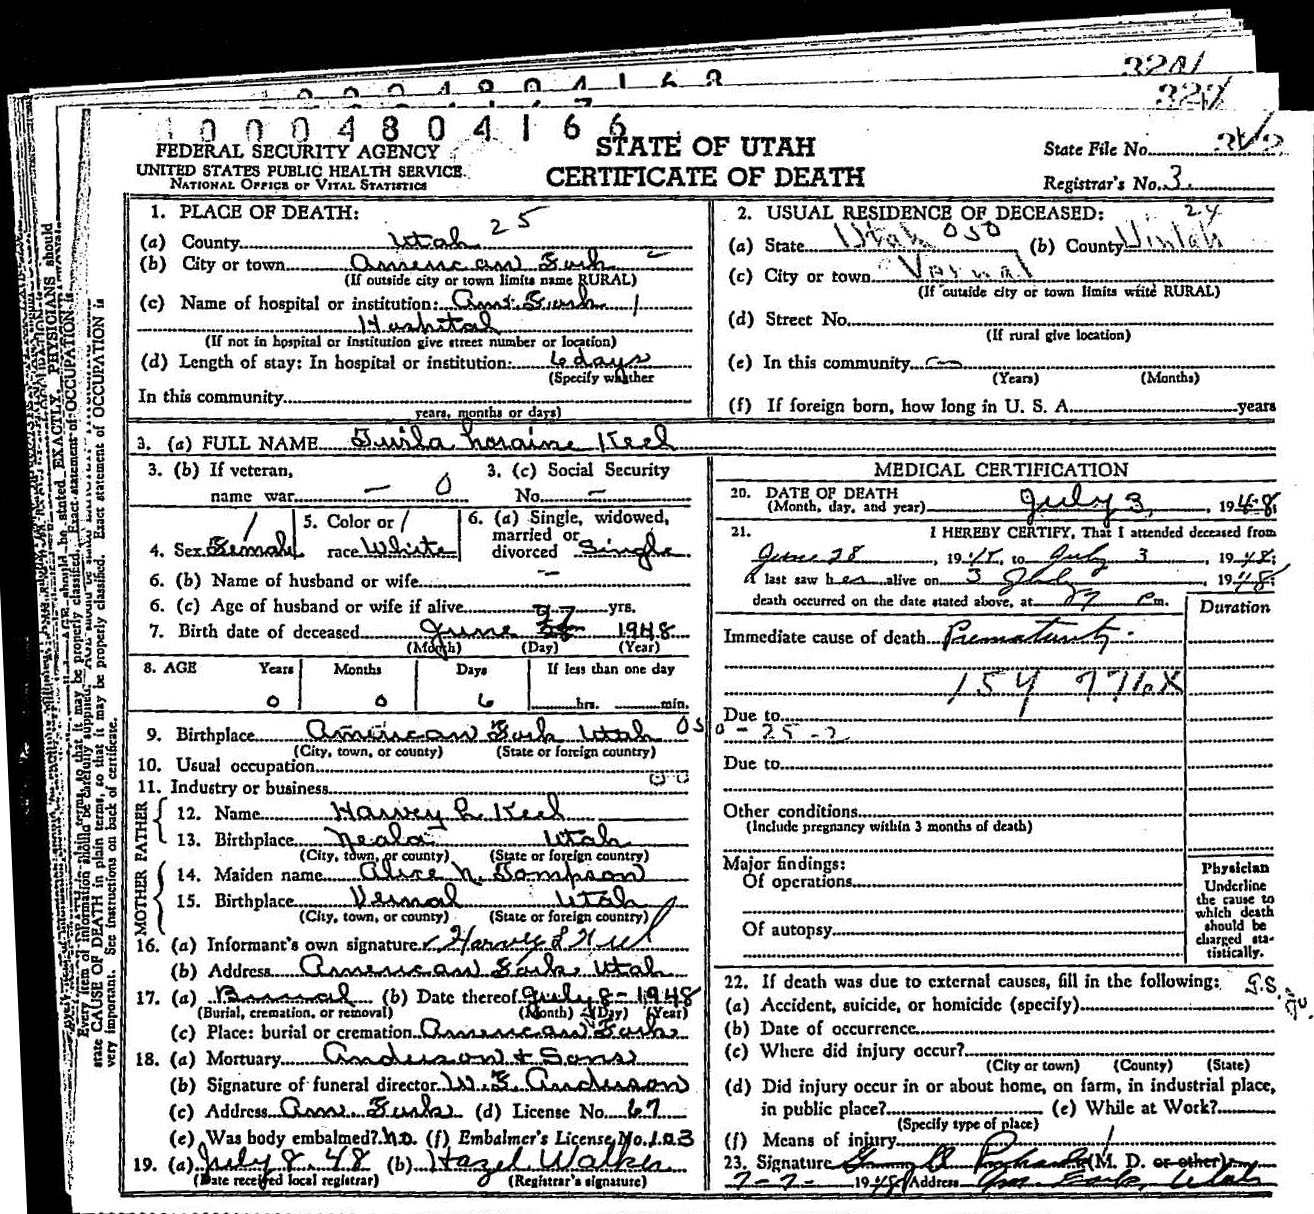 10004804166
FEDERAL SECURITY AGENCY
UNITED STATES PUBLIC HEALTH SERVICE
NATIONAL OFFICE OF VITAL STATISTICS
STATE OF UTAH
CERTIFICATE OF DEATH
State File No.
Registrar's No. 3
1. PLACE OF DEATH: 25
(a) County Utah
(b) City or town American Fork
(If outside city or town limits name RURAL)
(c) Name of hospital or institution: Am. Fork
Hospital
(If not in hospital or institution give street number or location)
(d) Length of stay: In hospital or institution: 6 days
(Specify whether
In this community
years, months or days)
2. USUAL RESIDENCE OF DECEASED: 24
(a) State Utah 050 (b) County Uintah
(c) City or town Vernal
(If outside city or town limits write RURAL)
(d) Street No.
(If rural give location)
(e) In this community
(Years) (Months)
(f) If foreign born, how long in U. S. A. years
3. (a) FULL NAME Twila Loraine Keel
3. (b) If veteran,
name war — 0
3. (c) Social Security
No. —
4. Sex Female
5. Color or
race White
6. (a) Single, widowed,
married or
divorced Single
6. (b) Name of husband or wife —
6. (c) Age of husband or wife if alive yrs.
7. Birth date of deceased June 27 1948
(Month) (Day) (Year)
8. AGE Years Months Days If less than one day
0 0 6 hrs. min.
9. Birthplace American Fork Utah 050-25-2
(City, town, or county) (State or foreign country)
10. Usual occupation
11. Industry or business
FATHER
12. Name Harvey L. Keel
13. Birthplace Neola Utah
(City, town, or county) (State or foreign country)
MOTHER
14. Maiden name Alice N. Tompson
15. Birthplace Vernal Utah
(City, town, or county) (State or foreign country)
16. (a) Informant's own signature Harvey L Keel
(b) Address American Fork, Utah
17. (a) Burial (b) Date thereof July 8-1948
(Burial, cremation, or removal) (Month) (Day) (Year)
(c) Place: burial or cremation American Fork
18. (a) Mortuary Anderson & Sons
(b) Signature of funeral director W. E. Anderson
(c) Address Am. Fork (d) License No. 67
(e) Was body embalmed? No. (f) Embalmer's License No. 103
19. (a) July 8, 48 (b) Hazel Walker
(Date received local registrar) (Registrar's signature)
MEDICAL CERTIFICATION
20. DATE OF DEATH
(Month, day, and year) July 3, 1948
21. I HEREBY CERTIFY, That I attended deceased from
June 28, 1948, to July 3, 1948;
I last saw her alive on 3 July 1948;
death occurred on the date stated above, at P m.
Duration
Immediate cause of death Prematurity.
159 776X
Due to
Due to
Other conditions
(Include pregnancy within 3 months of death)
Major findings:
Of operations
Of autopsy
Physician
Underline
the cause to
which death
should be
charged sta-
tistically.
22. If death was due to external causes, fill in the following:
(a) Accident, suicide, or homicide (specify)
(b) Date of occurrence
(c) Where did injury occur?
(City or town) (County) (State)
(d) Did injury occur in or about home, on farm, in industrial place,
in public place? (e) While at Work?
(Specify type of place)
(f) Means of injury
23. Signature (M. D. or other)
7-7- 1948 Address Am. Fork, Utah
state CAUSE OF DEATH in plain terms, so that it may be properly classified. Exact statement of OCCUPATION is
very important. See instructions on back of certificate.